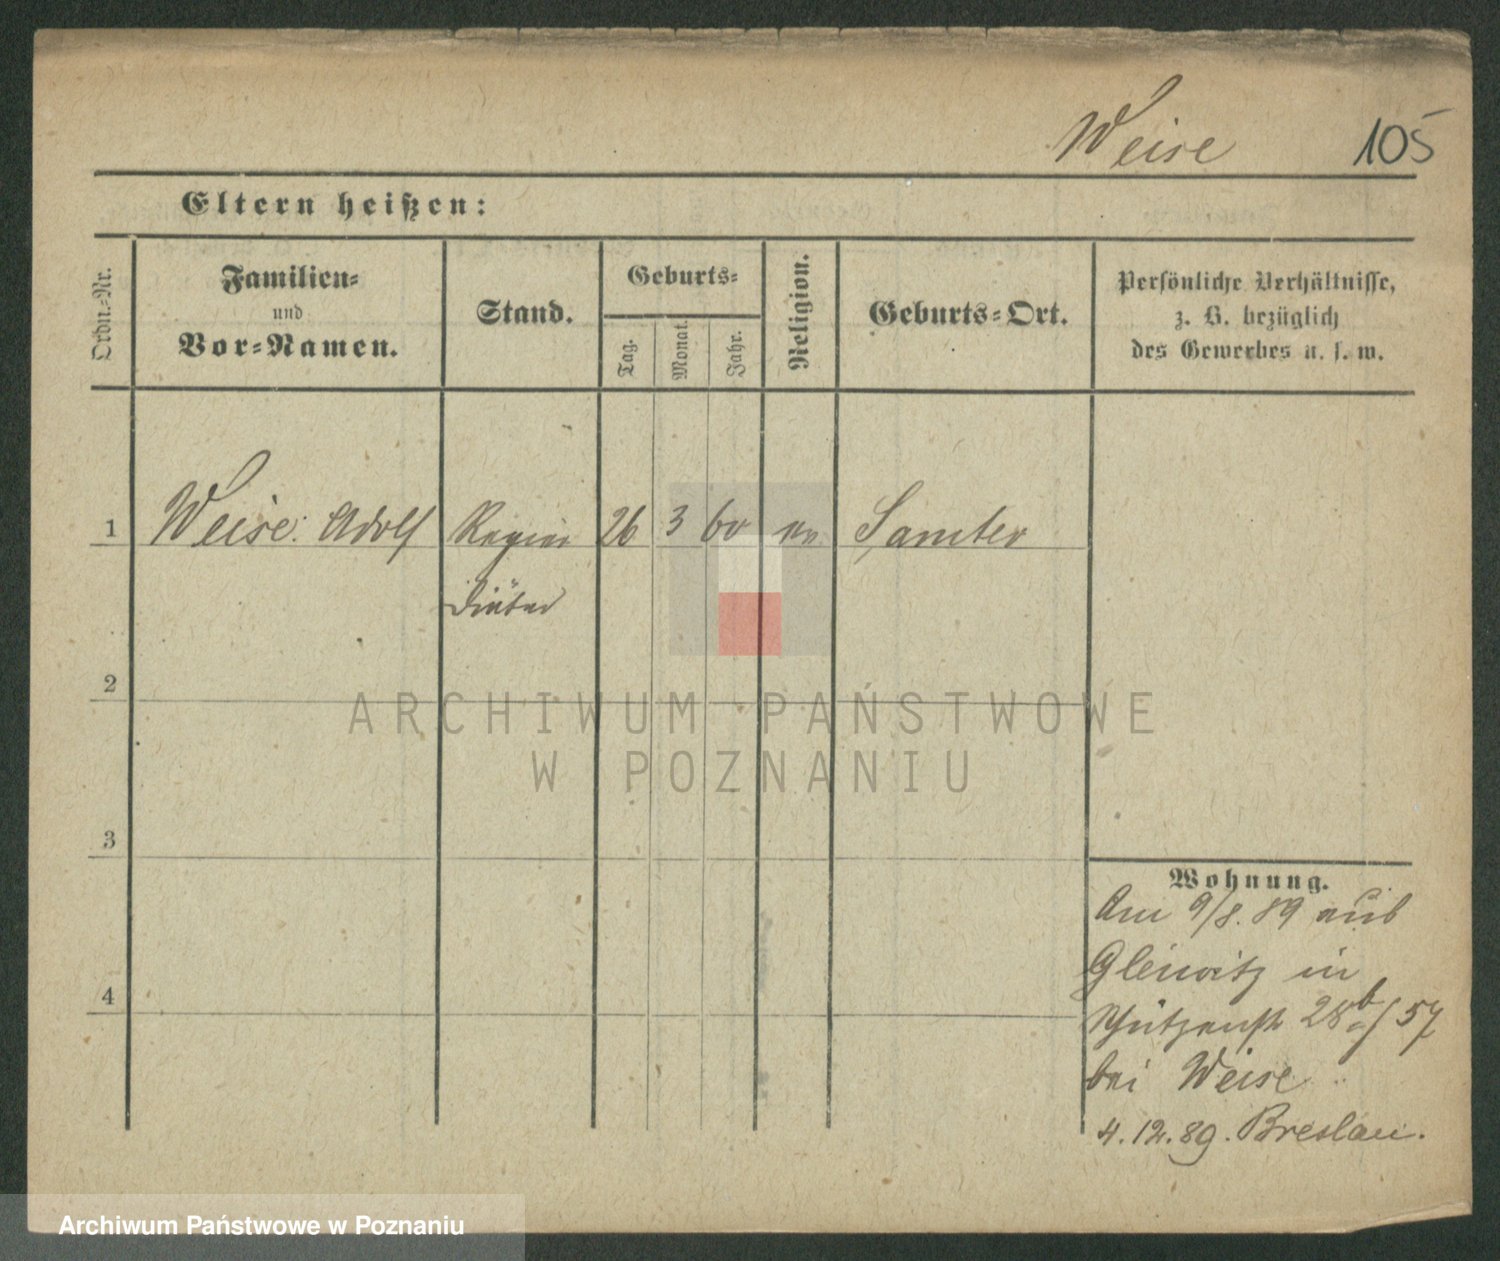 Weise 105
Eltern heißen:
Ordn.-Nr.
Familien-
und
Vor-Namen.
Stand.
Geburts-
Tag.
Monat.
Jahr.
Religion.
Geburts-Ort.
Persönliche Verhältnisse,
z. B. bezüglich
des Gewerbes u. s. w.
1 Weise Adolf 26 3 60 ev Samter
Diätar
2
3
4
Wohnung.
Am 9/8. 89 aus
Gleiwitz in
Schützenstr 28b/57
bei Weise
4.12.89. Breslau.
ARCHIWUM PAŃSTWOWE
W POZNANIU
Archiwum Państwowe w Poznaniu